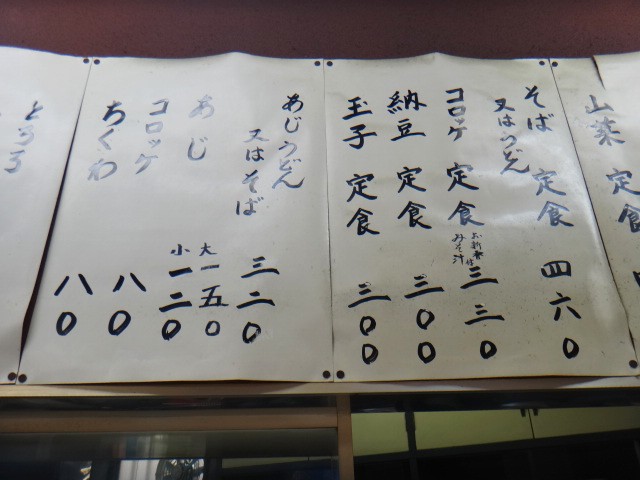 山菜 定食
そば 又はうどん 定食 四六〇
コロッケ 定食 お新香 みそ汁 三三〇
納豆 定食 三〇〇
玉子 定食 三〇〇
あじうどん
又はそば 三二〇
あじ 大一五〇
小一二〇
コロッケ 八〇
ちくわ 八〇
とろろ